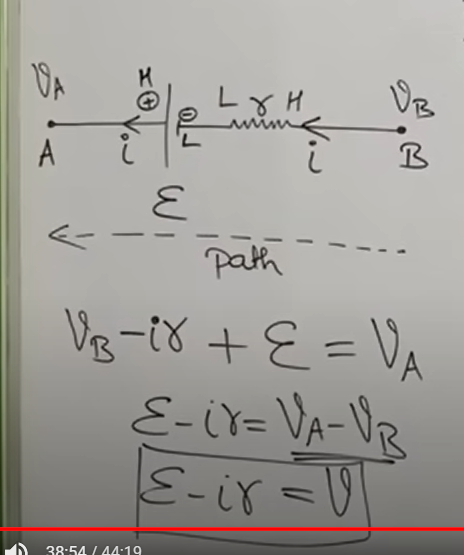 V_A H V_B
⊕ ⊖ L r H
A i L i B
ε
path
V_B - ir + ε = V_A
ε - ir = V_A - V_B
ε - ir = V
38:54 / 44:19